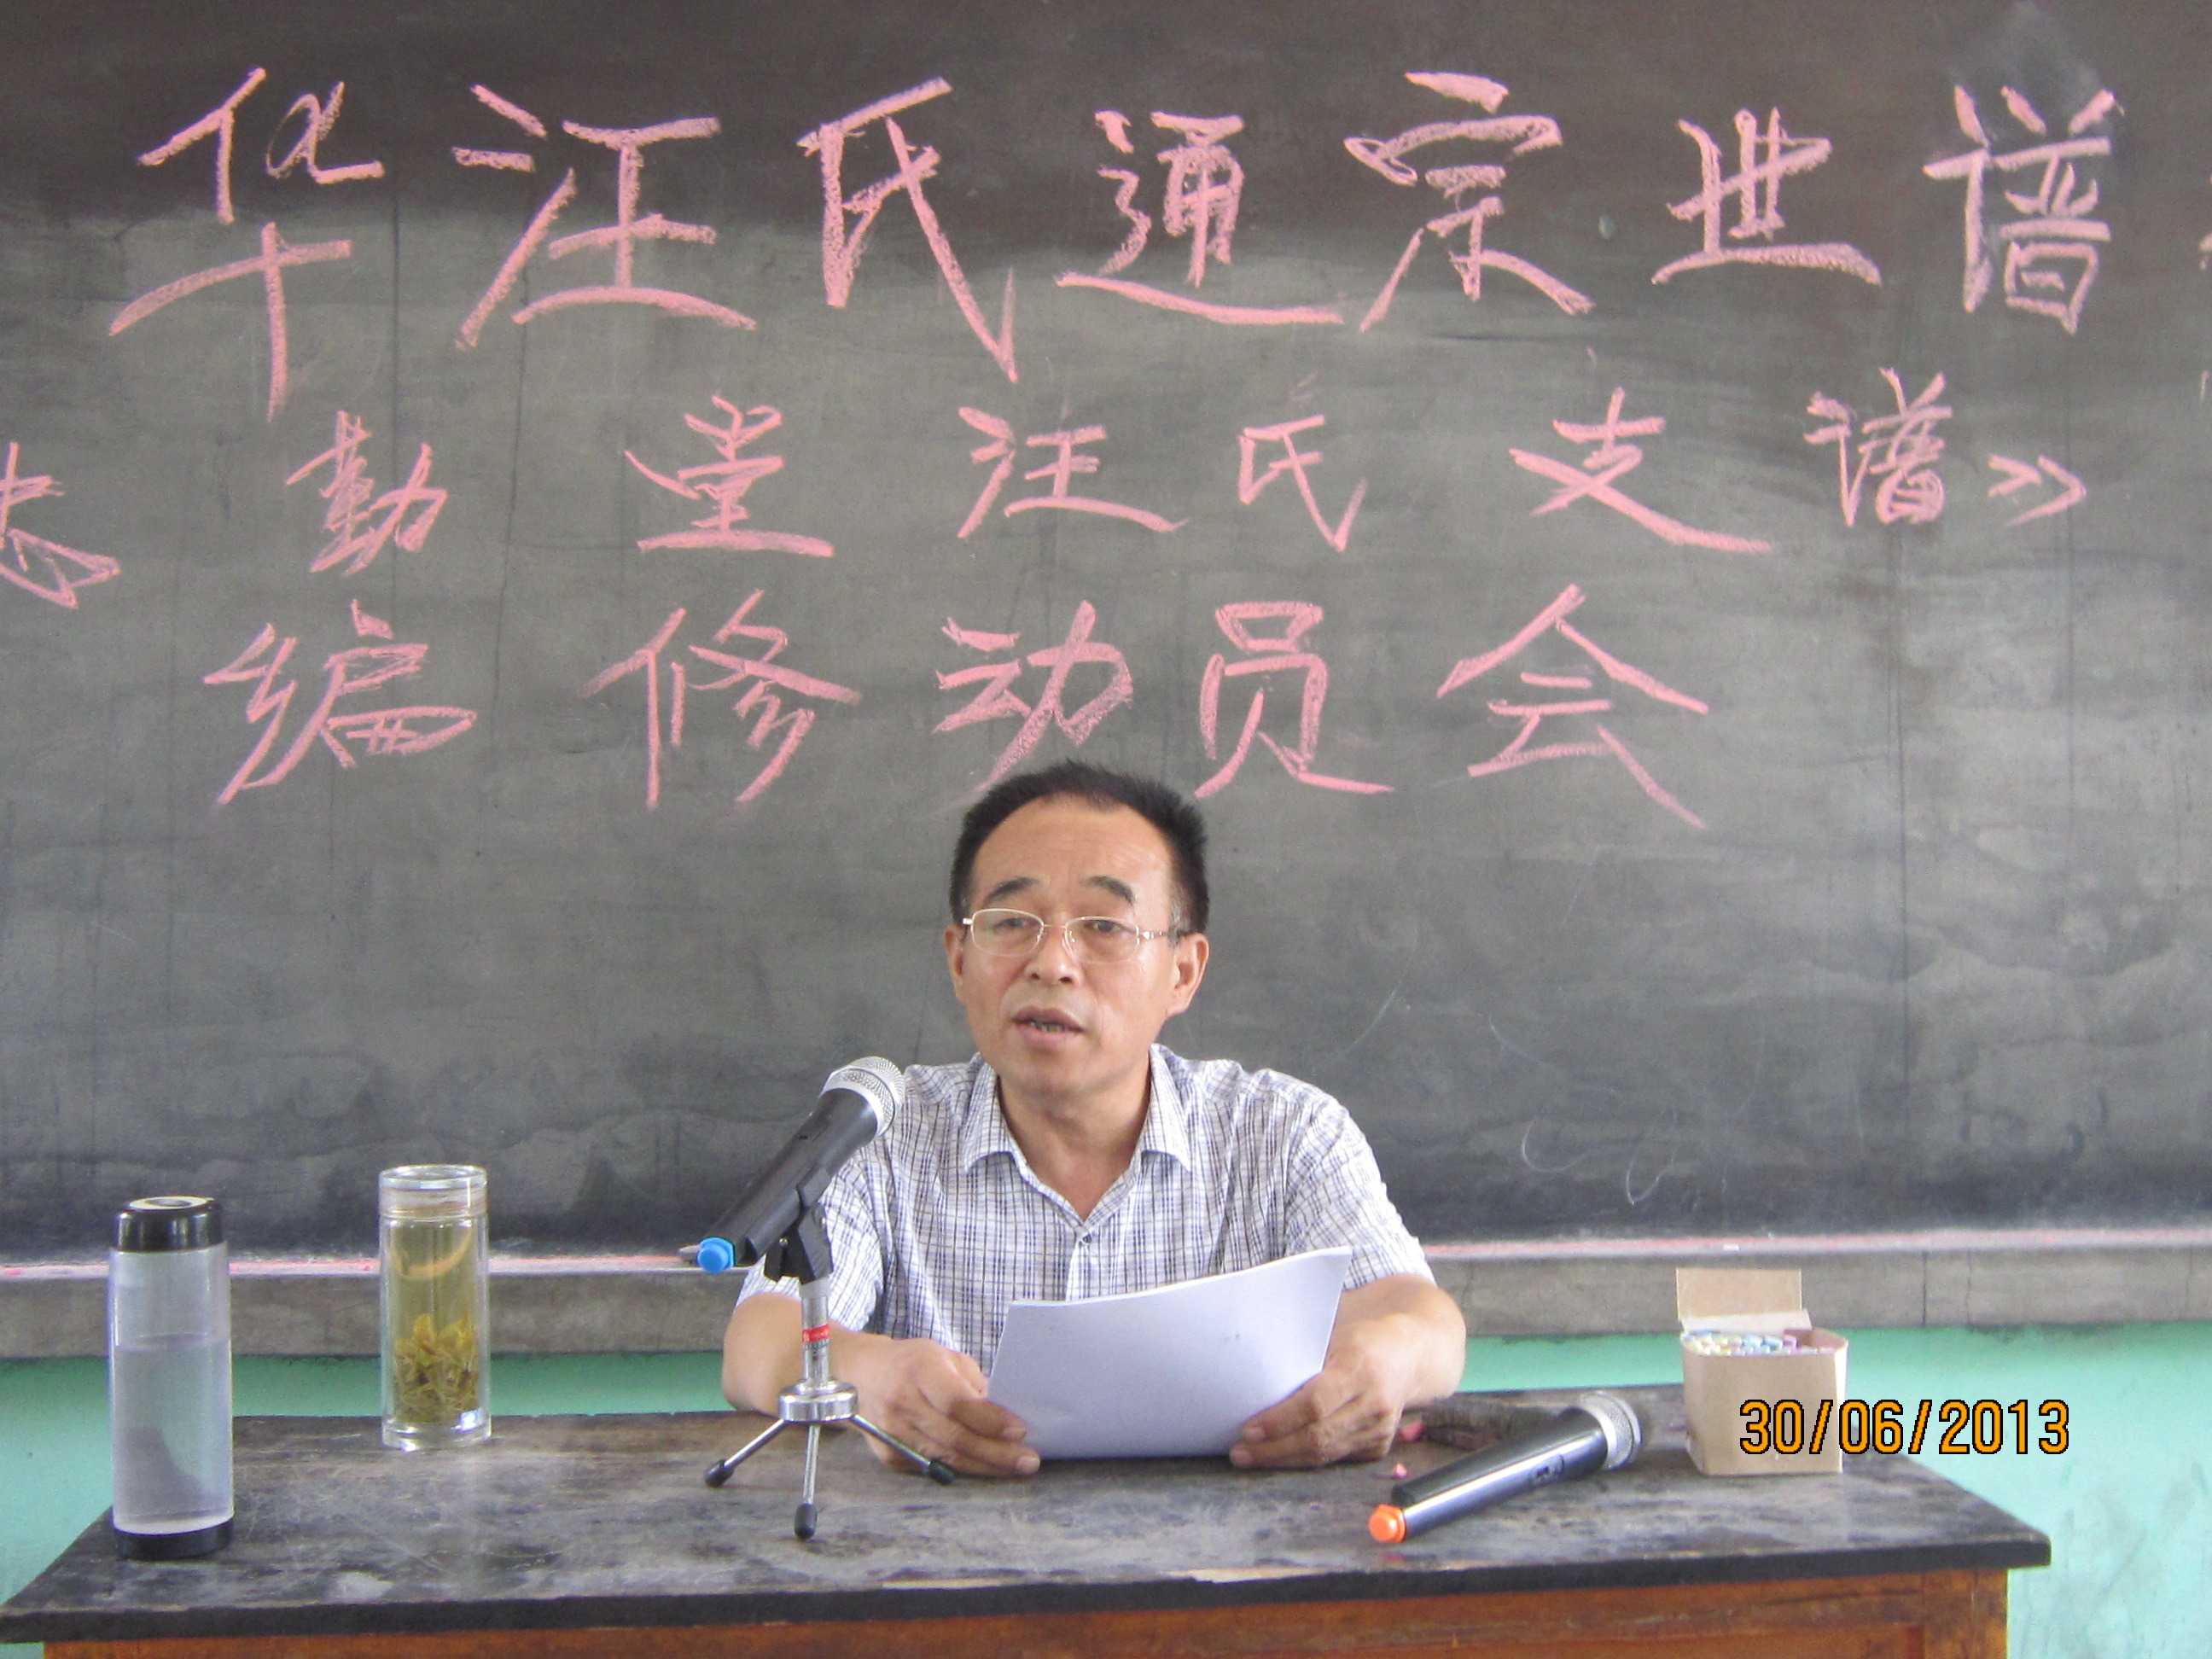 华汪氏通宗世谱
志勤堂汪氏支谱》
编修动员会
30/06/2013